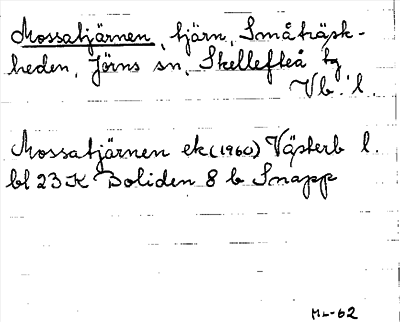 Mossatjärnen, tjärn, Småträsk-
heden, Jörns sn, Skellefteå tg
Vb. l.
Mossatjärnen ek (1960) Västerb l.
bl 23 K Boliden 8 b Snapp
ML-62